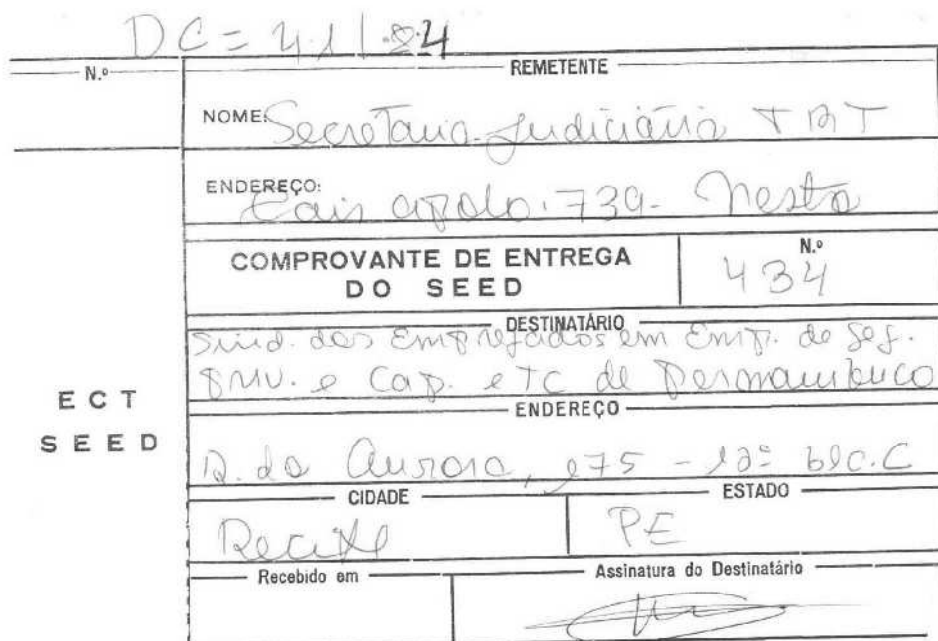 DC = 41/84
N.º
REMETENTE
NOME: Secretaria Judiciária TRT
ENDEREÇO: Cais apolo. 739 - Nesta
COMPROVANTE DE ENTREGA
DO SEED
N.º
434
DESTINATÁRIO
Sind. dos Empregados em Emp. de Seg.
Priv. e Cap. etc de Pernambuco
ECT
SEED
ENDEREÇO
R. da Aurora, 175 - 12º blc. C
CIDADE
Recife
ESTADO
PE
Recebido em
Assinatura do Destinatário